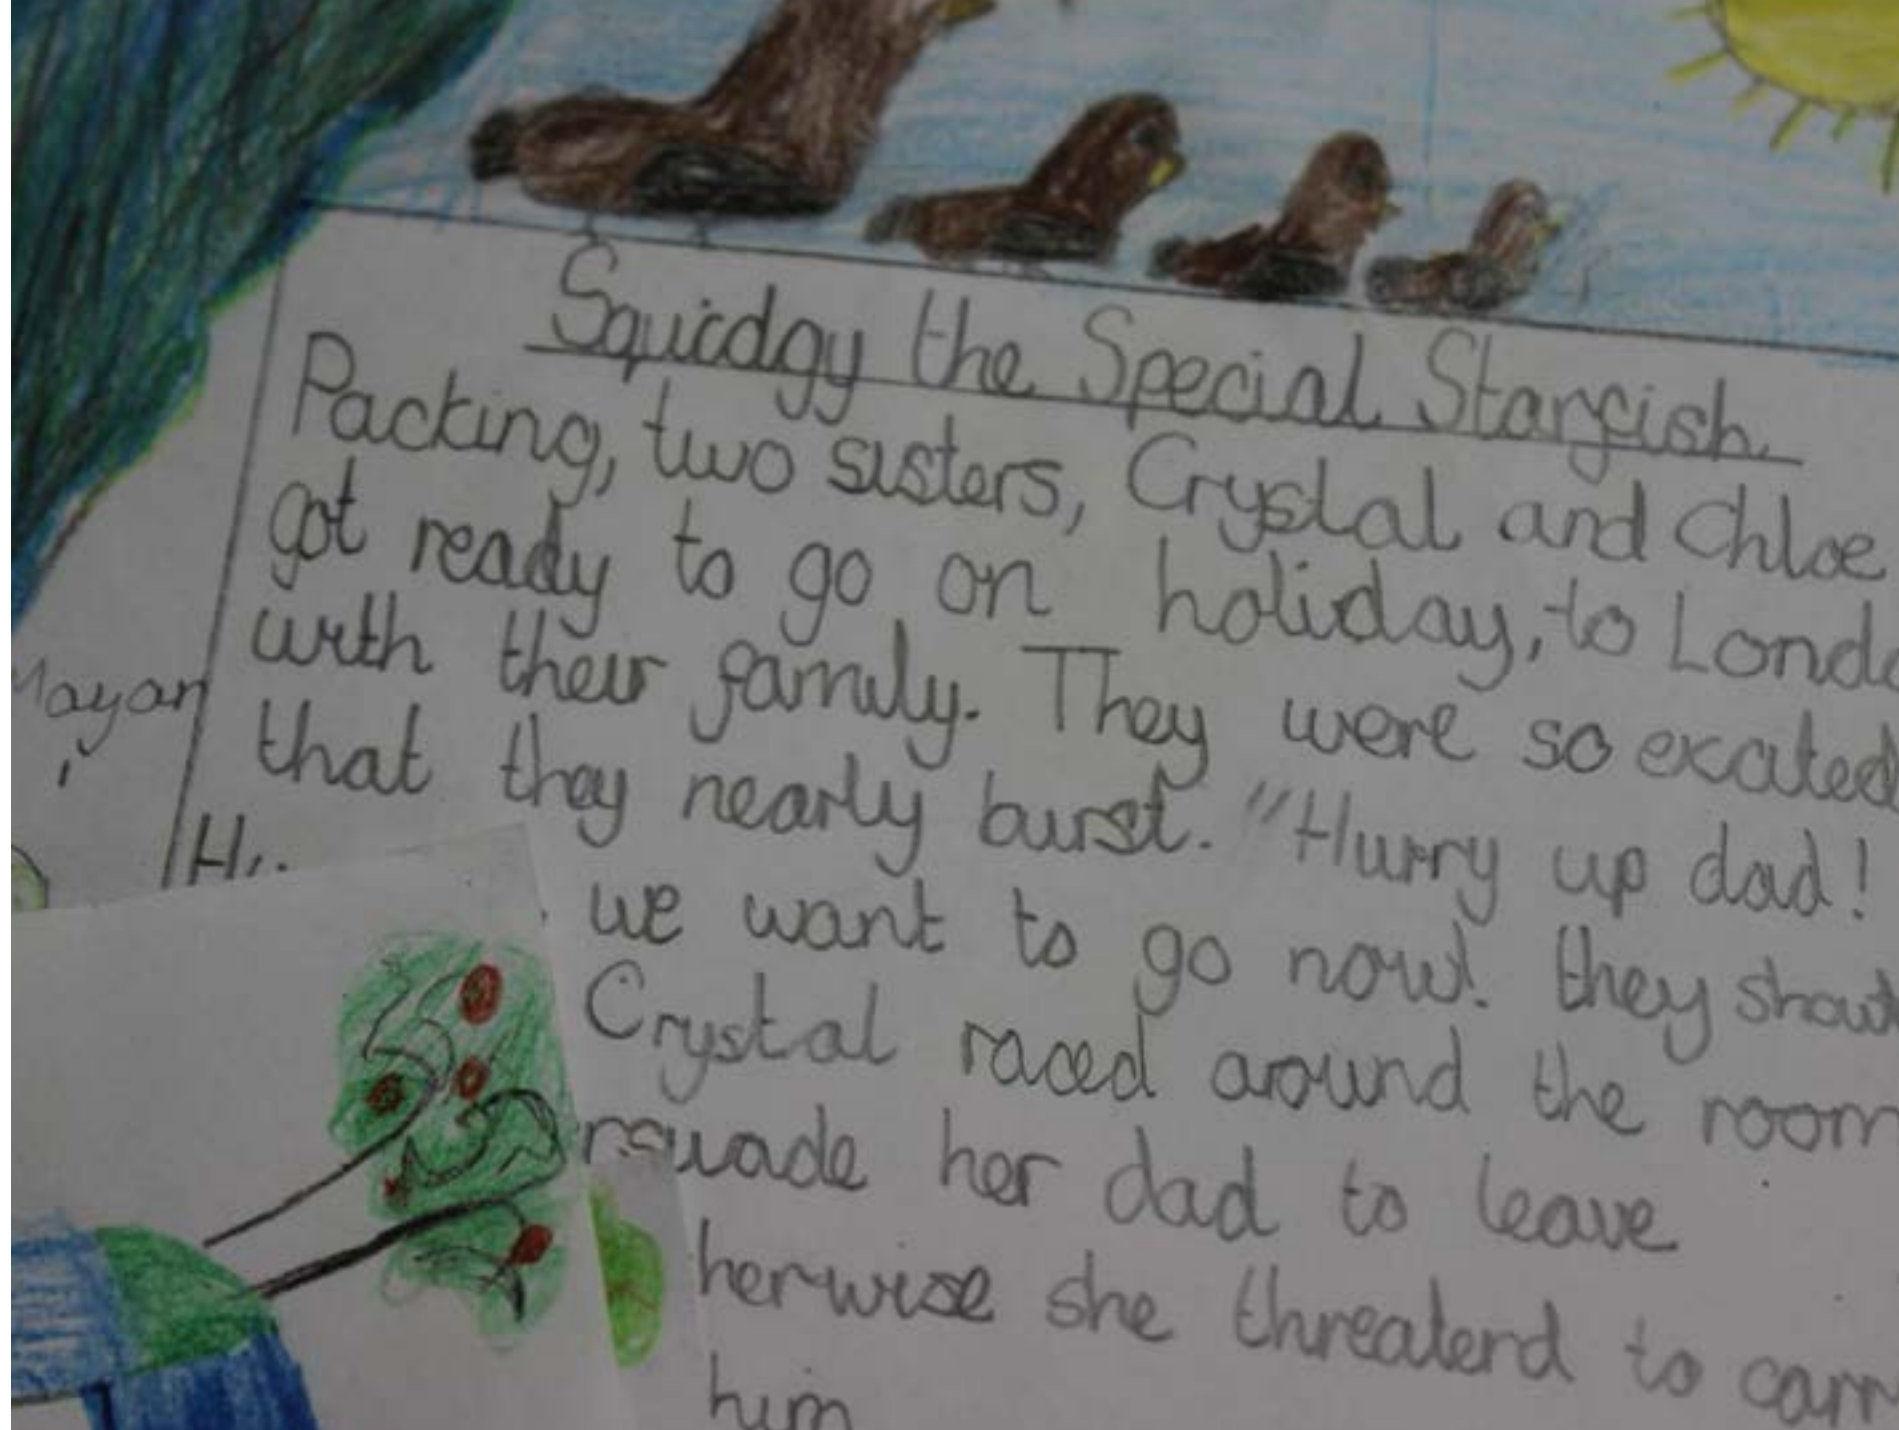 Squidgy the Special Starfish.
Packing, two sisters, Crystal and Chloe
got ready to go on holiday, to Londo
with their family. They were so excited
that they nearly burst. "Hurry up dad!
we want to go now! they shout
Crystal raced around the room
rsuade her dad to leave
herwise she threaterd to carr
him
Mayan